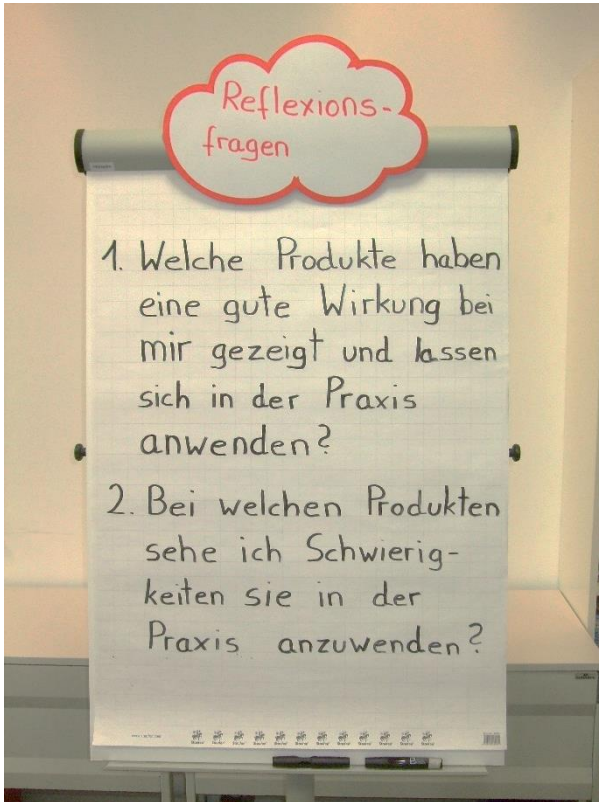 Reflexions-
fragen
1. Welche Produkte haben
eine gute Wirkung bei
mir gezeigt und lassen
sich in der Praxis
anwenden?
2. Bei welchen Produkten
sehe ich Schwierig-
keiten sie in der
Praxis anzuwenden?